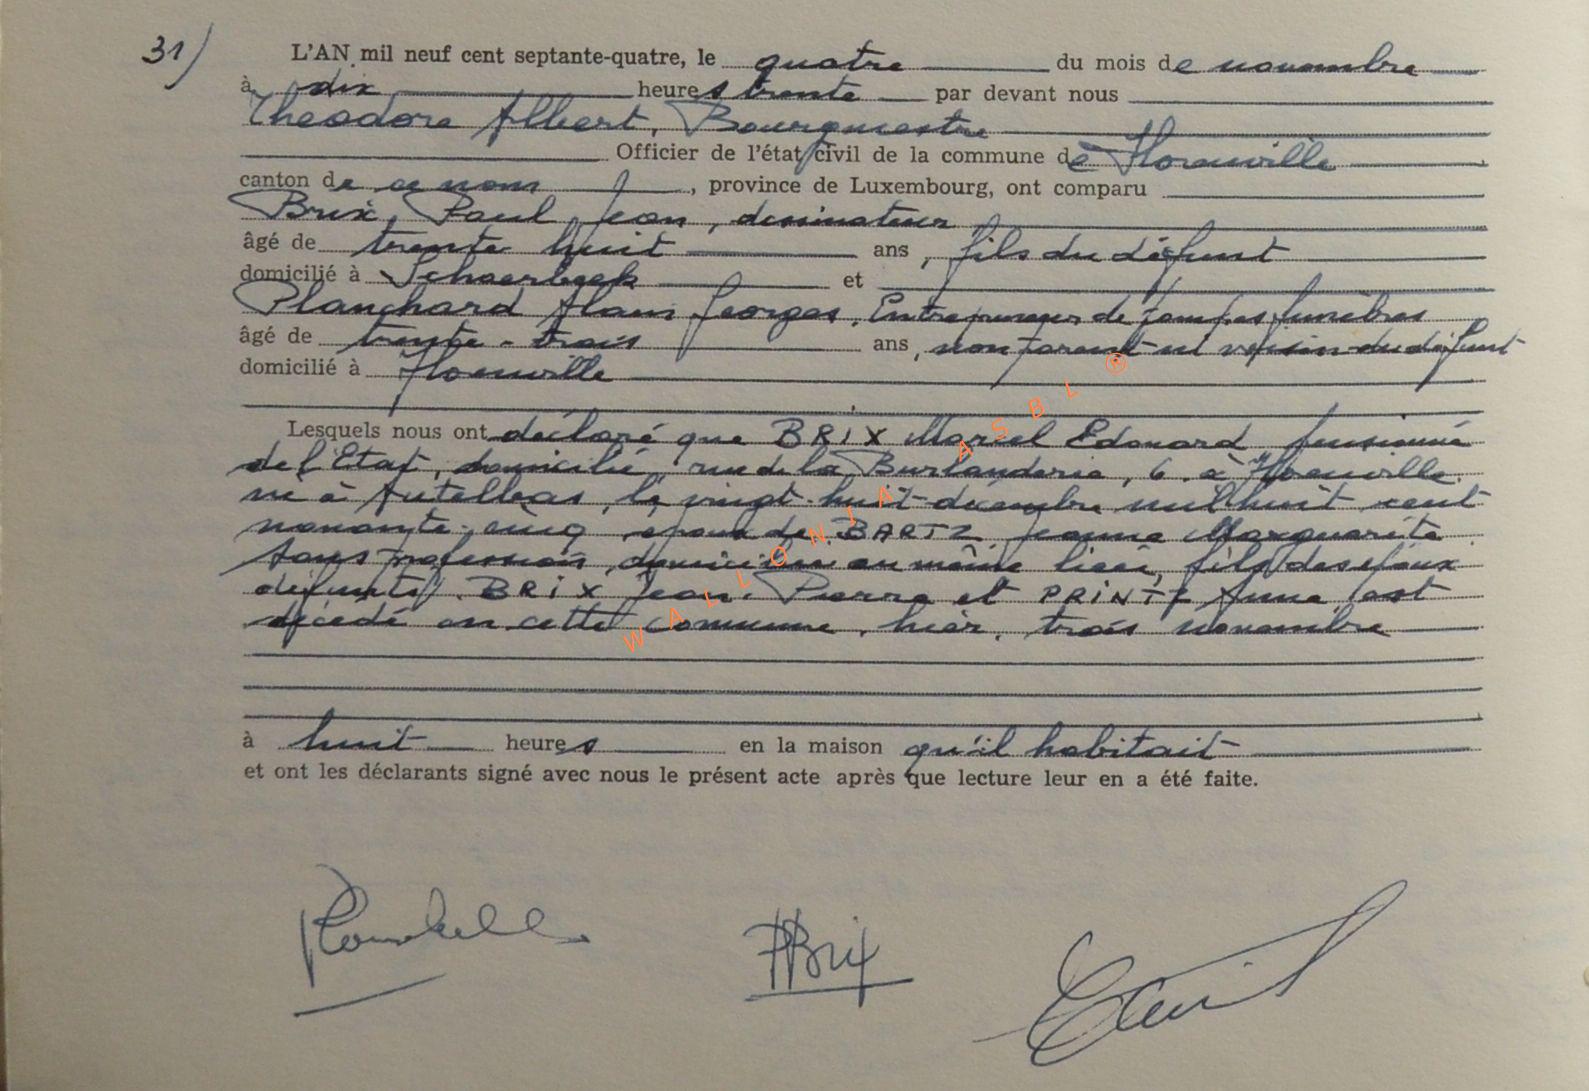 31)
L'AN mil neuf cent septante-quatre, le quatre du mois de novembre
à dix heures trente par devant nous
Theodore Albert, Bourgmestre
Officier de l'état civil de la commune de Florenville
canton de ce nom, province de Luxembourg, ont comparu
Brix, Paul Jean, dessinateur
âgé de trente huit ans, fils du défunt
domicilié à Schaerbeek et
Planchard Alain Georges, Entrepreneur de pompes funèbres
âgé de trente-trois ans, non parent ni voisin du défunt
domicilié à Florenville
Lesquels nous ont déclaré que BRIX Marcel Edouard pensionné
de l'Etat, domicilié, rue de la Burlanderie, 6 à Florenville
né à Autelbas, le vingt-huit décembre mil huit cent
nonante-cinq, époux de BARTZ Jeanne Marguerite
sans profession, domiciliée au même lieu, fils des époux
défunts BRIX Jean-Pierre et PRINTZ Anne, est
décédé en cette commune, hier, trois novembre
à huit heures en la maison qu'il habitait
et ont les déclarants signé avec nous le présent acte après que lecture leur en a été faite.
PBrix
WALLONIA ASBL ®